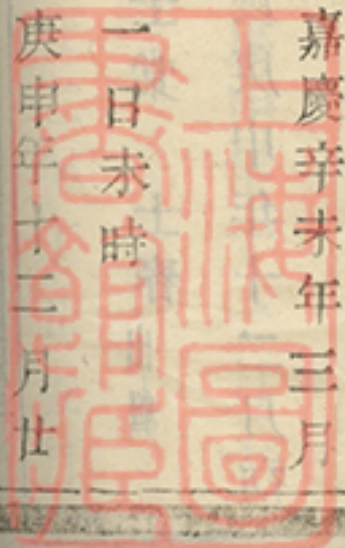 嘉慶辛未年三月
一日未時
庚申年十二月廿
上海圖
書館藏